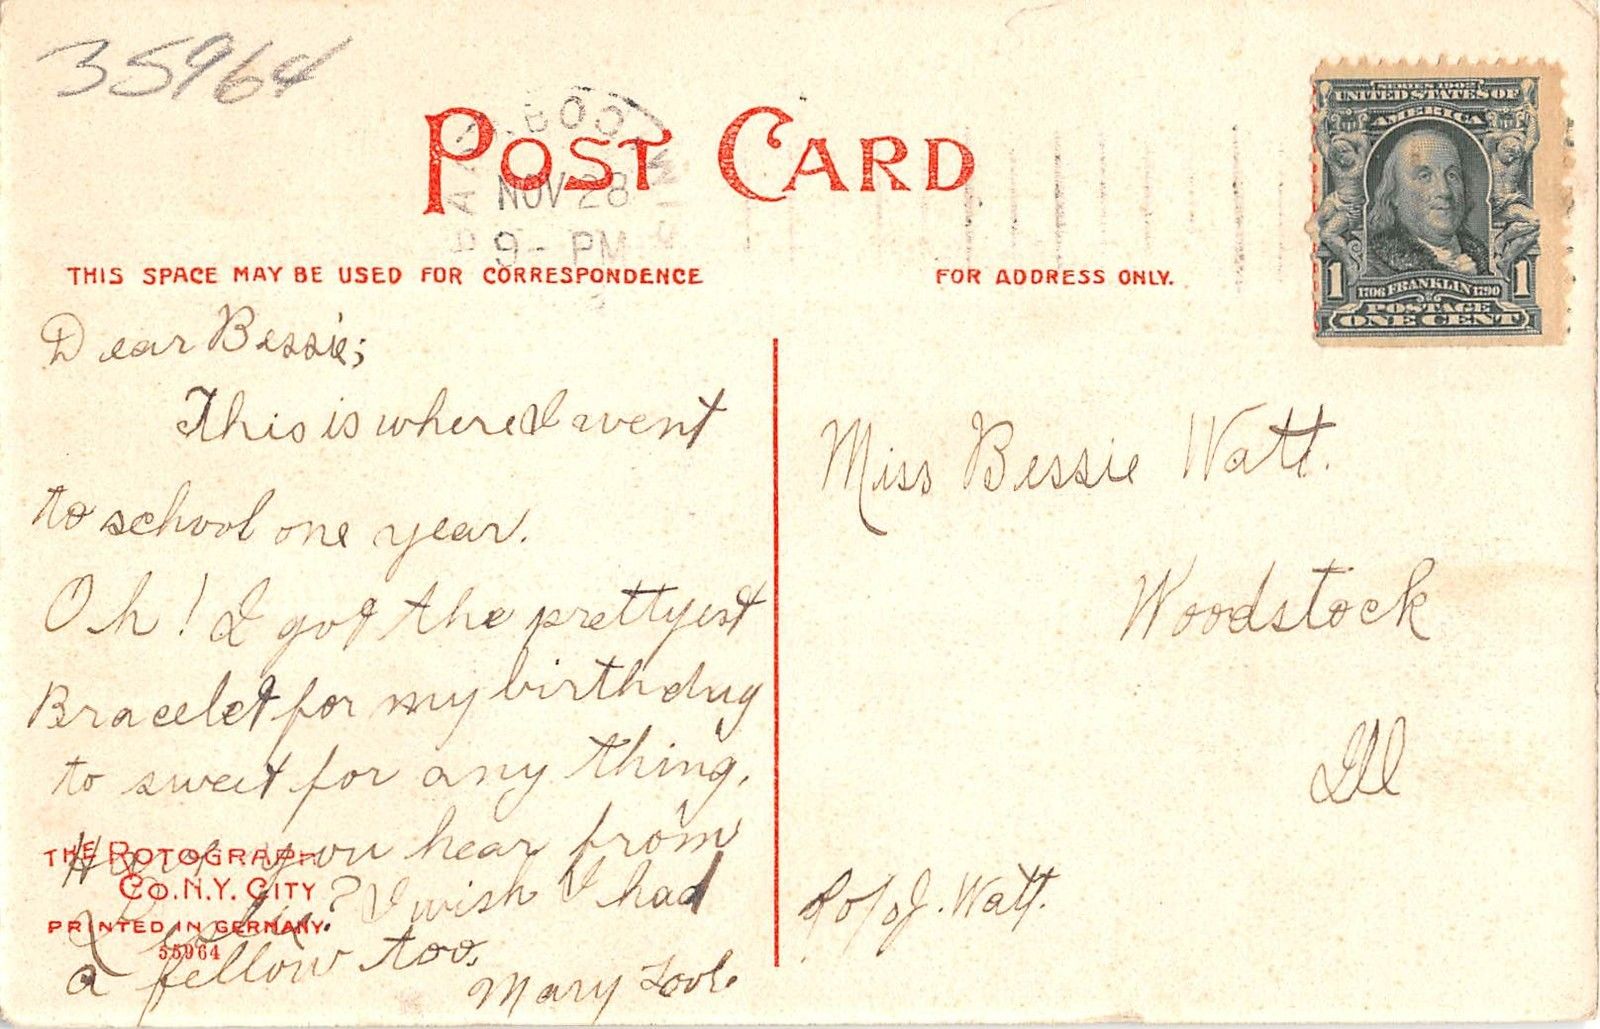 35964
POST CARD
NOV 28
9- PM
SERIES 1902
UNITED STATES OF
AMERICA
1 1706 FRANKLIN 1790 1
POSTAGE
ONE CENT
THIS SPACE MAY BE USED FOR CORRESPONDENCE
FOR ADDRESS ONLY.
Dear Bessie;
This is where I went
to school one year.
Oh! I got the prettyest
Bracelet for my birthday
to sweet for any thing.
you hear from
Leslie? I wish I had
a fellow too.
Mary
THE ROTOGRAPH
CO. N.Y. CITY
PRINTED IN GERMANY.
55964
Miss Bessie Watt.
Woodstock
Ill
J. Watt.